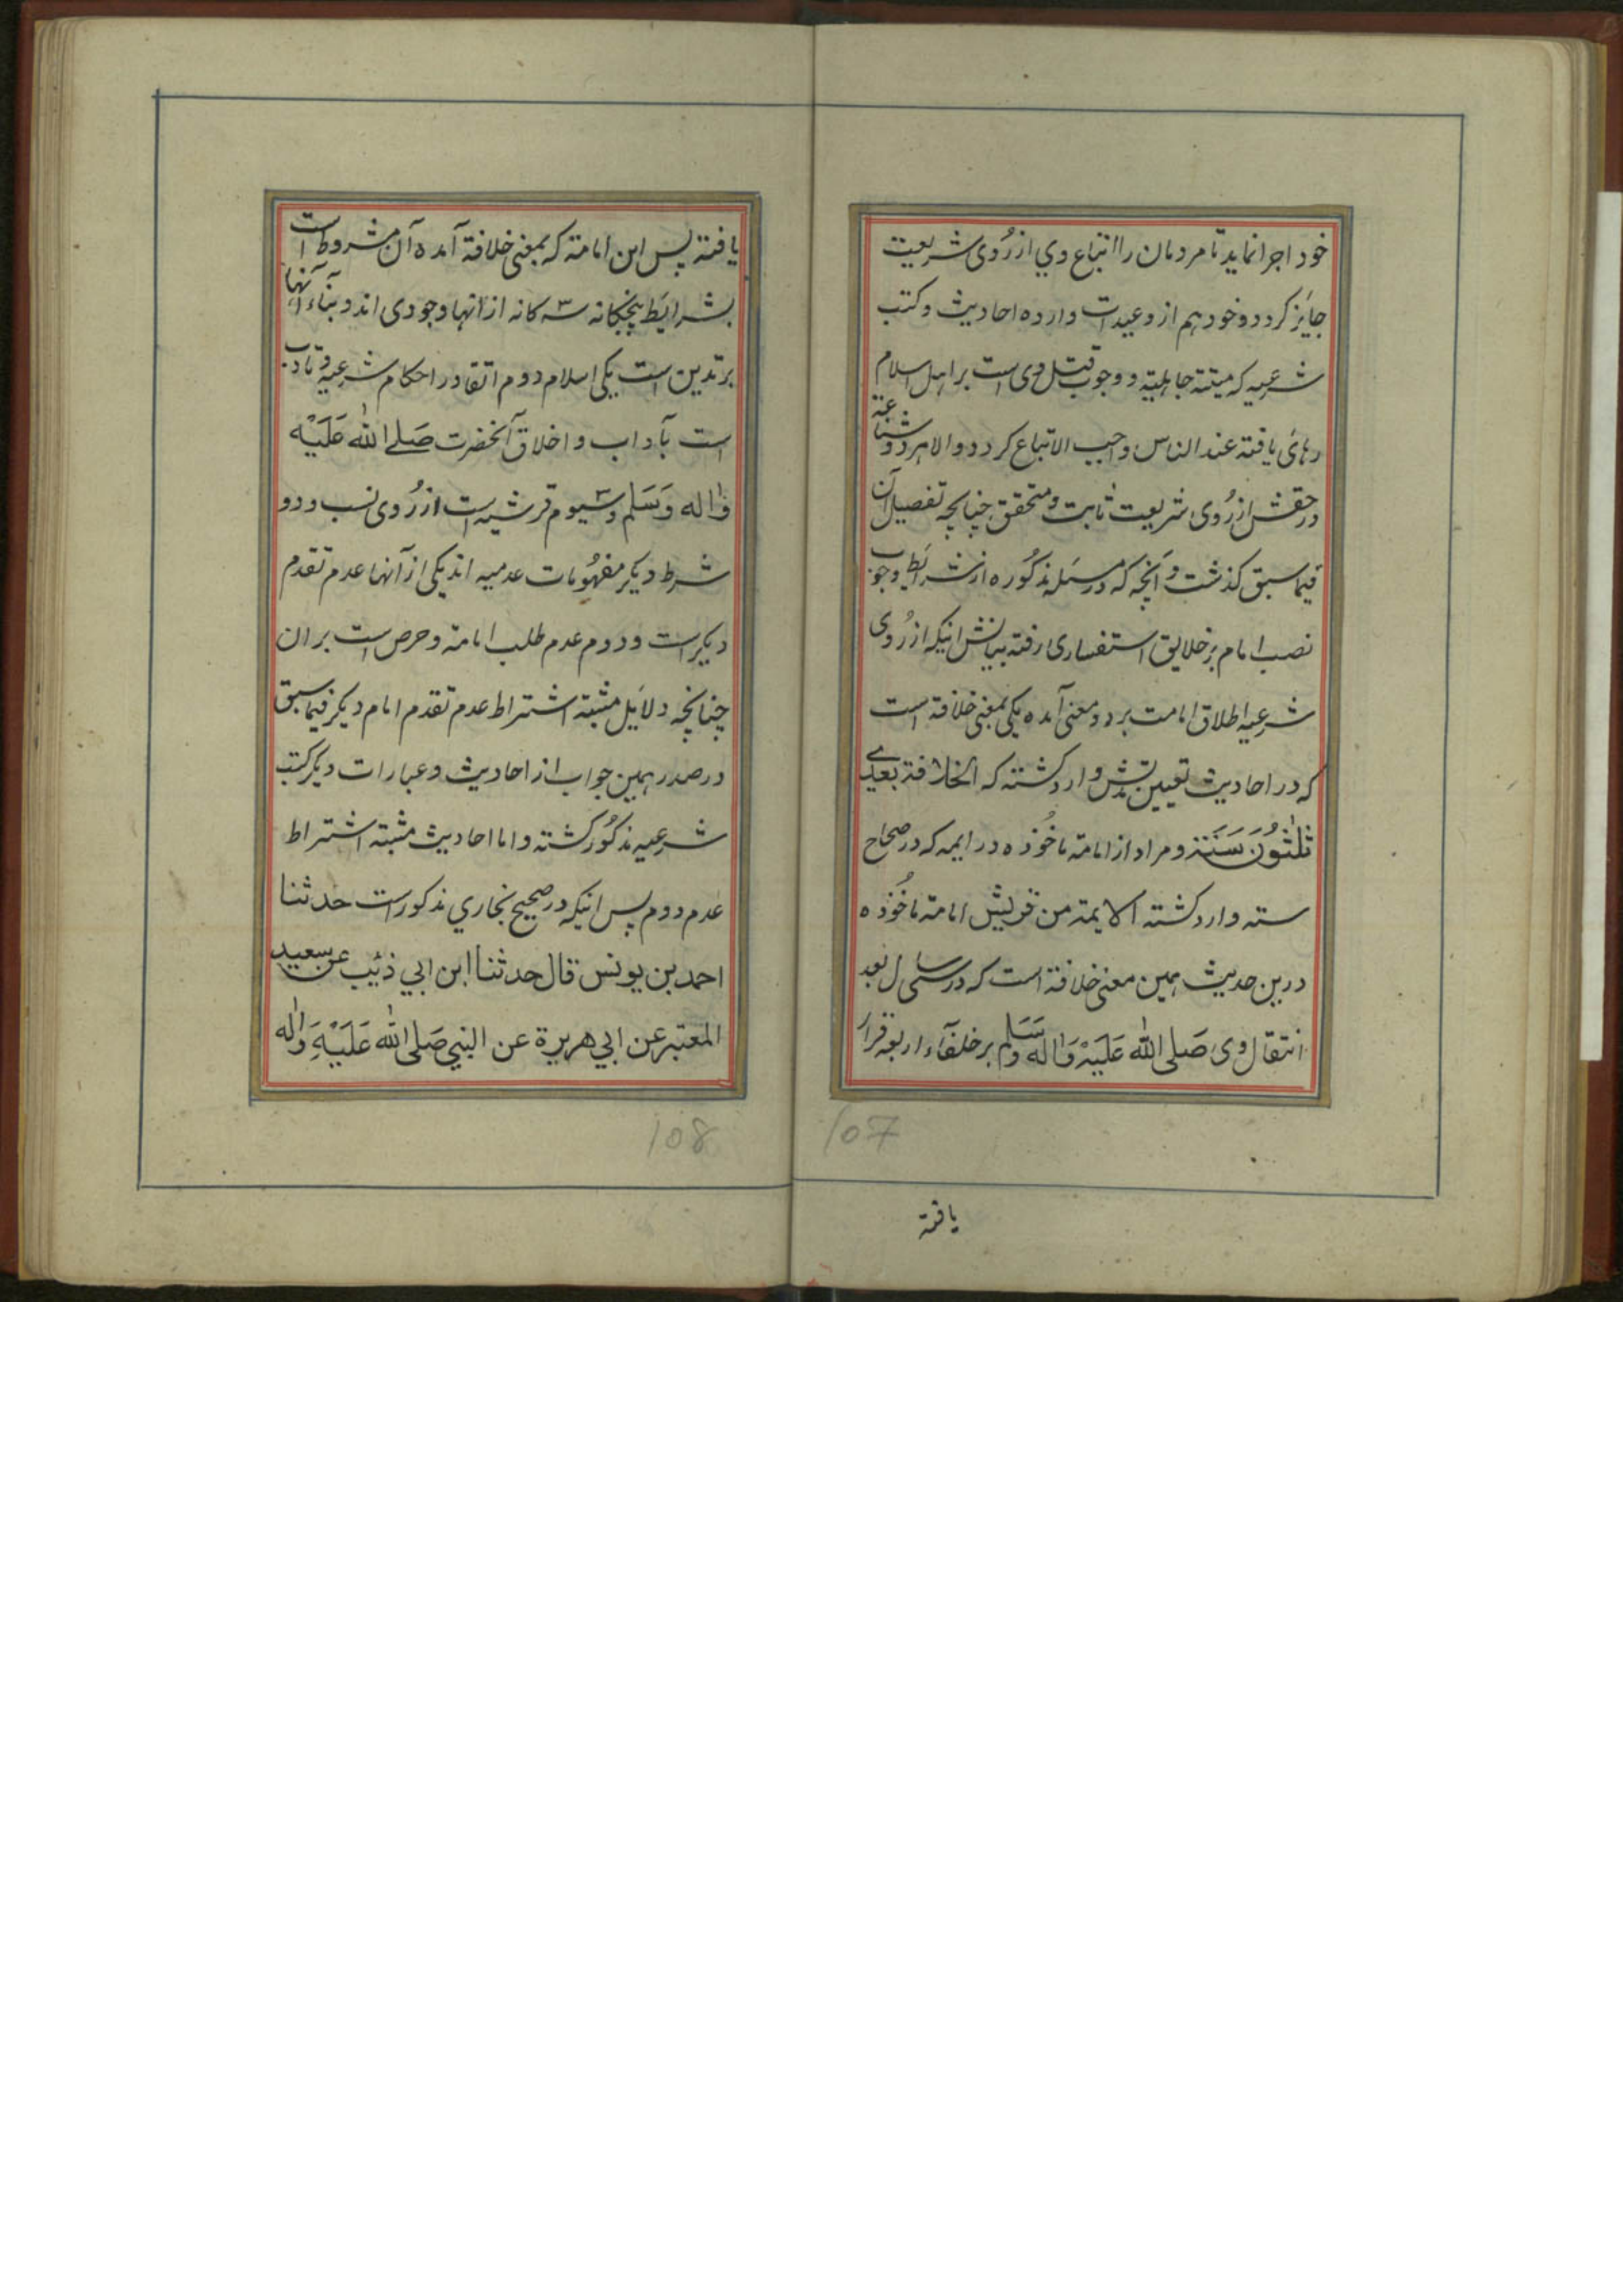 خود اجرا نماید تا مردمان را اتباع وي از رُوی شریعت
جایَز کردد و خود هم از وعیدات وارده احادیث و کتب
شرعیه که میتة جاهلیة و وجوب قتل وی است بر اهل اسلام
رهائ یافته عند الناس واجب الاتباع کردد و الا مردود و شناعة
در حقش از رُوی شریعت ثابت و متحقق چنانچه تفصیل آن
فیما سبق کذشت و آنچه که در مسئله مذکُوره از شرایَط وجوب
نصب امام بر خلایق استفساری رفته بیانش اینکه از رُوی
شرعیه اطلاق امامت بر دو معنی آمده یکی بمعنی خلافة است
که در احادیث تعیین مدتش وارد کشته که الخلافة بعدی
ثلٰثُونَ سَنَة و مراد از امامة ماخُوذه در ایمه که در صحاح
سته وارد کشته الایمة من قریش امامة ماخُوذه
درین حدیث همین معنی خلافة است که در سی سال بعد
انتقال وی صَلی اللّٰه عَلَیْهْ وَاٰله وَسَلم بر خلفآء اربعه قرار
یافته
یافته پس این امامة که بمعنی خلافة آمده آن مشروط است
بشرایَط پنجکانه سه کانه از انها وجودی اند و بناء آنها
بر تدین است یکی اسلام دوم اتقا در احکام شرعیه و تادب
است بآداب و اخلاق آنحضرت صَلے اللّٰه عَلَیْه
وَاٰله وَسَلم و سیوم قرشیه است از رُوی نسب و دو
شرط دیکر مفهُومات عدمیه اند یکی از آنها عدم تقدم
دیکر است و دوم عدم طلب امامة و حرص است بر ان
چنانچه دلایَل مثبتة اشتراط عدم تقدم امام دیکر فیما سبق
در صدر همین جواب از احادیث و عبارات دیکر کتب
شرعیه مذکُور کشته و اما احادیث مثبتة اشتراط
عدم دوم پس اینکه در صحیح بخاري مذکور است حدثنا
احمد بن یونس قال حدثنا ابن ابي ذئیب عن سعید
المعتبر عن ابي هریرة عن النبي صَلی اللّٰه عَلَیْهِ وَاٰله
108
107